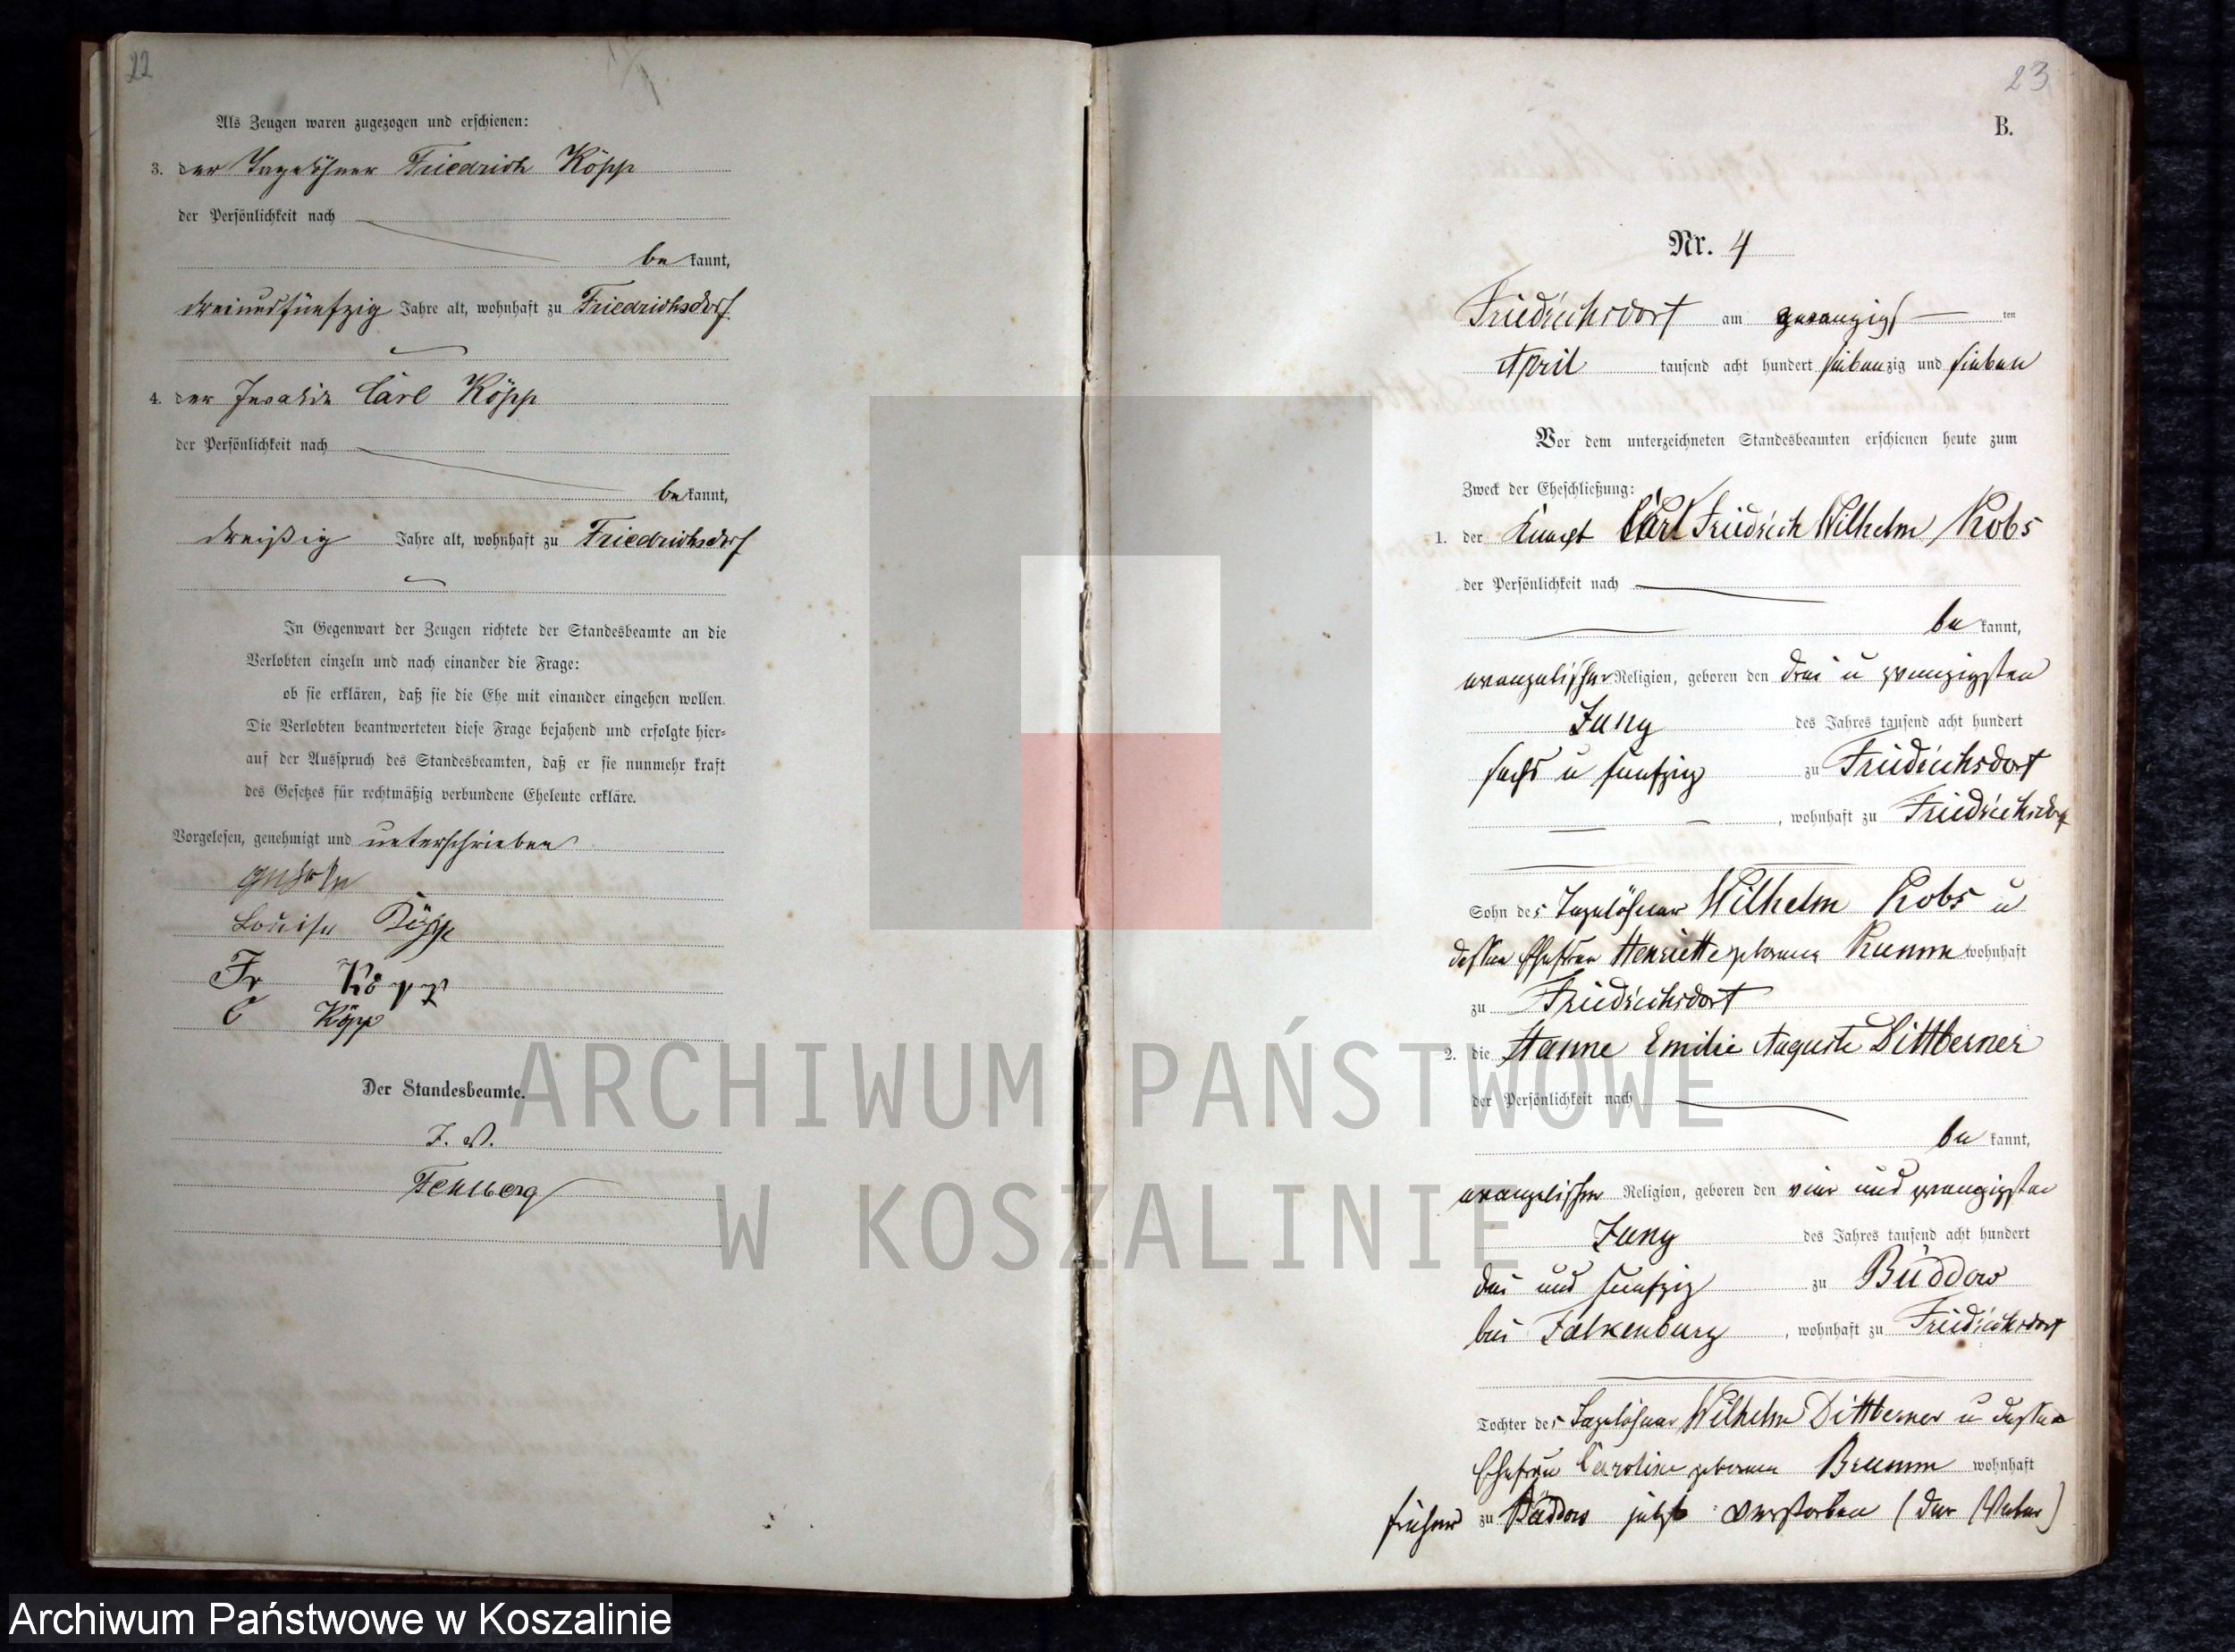 22
Als Zeugen waren zugezogen und erschienen:
3. der Tagelöhner Friedrich Köpp
der Persönlichkeit nach
bekannt,
dreiundfünfzig Jahre alt, wohnhaft zu Friedrichsdorf
4. der Invalide Carl Köpp
der Persönlichkeit nach
bekannt,
dreißig Jahre alt, wohnhaft zu Friedrichsdorf
In Gegenwart der Zeugen richtete der Standesbeamte an die
Verlobten einzeln und nach einander die Frage:
ob sie erklären, daß sie die Ehe mit einander eingehen wollen.
Die Verlobten beantworteten diese Frage bejahend und erfolgte hier=
auf der Ausspruch des Standesbeamten, daß er sie nunmehr kraft
des Gesetzes für rechtmäßig verbundene Eheleute erkläre.
Vorgelesen, genehmigt und unterschrieben
Louise Köpp
Fr Köpp
C Köpp
Der Standesbeamte.
I. V.
Fehlberg
23
B.
Nr. 4
Friedrichsdorf am zwanzigsten
April tausend acht hundert siebenzig und sieben
Vor dem unterzeichneten Standesbeamten erschienen heute zum
Zweck der Eheschließung:
1. der Knecht Carl Friedrich Wilhelm Kobs
der Persönlichkeit nach
bekannt,
evangelischer Religion, geboren den drei u zwanzigsten
Juny des Jahres tausend acht hundert
sechs u funfzig zu Friedrichsdorf
, wohnhaft zu Friedrichsdorf
Sohn des Tagelöhner Wilhelm Kobs u
dessen Ehefrau Henriette geborene Rumm wohnhaft
zu Friedrichsdorf
2. die Hanne Emilie Auguste Dittberner
der Persönlichkeit nach
bekannt,
evangelischer Religion, geboren den vier und zwanzigsten
Juny des Jahres tausend acht hundert
drei und funfzig zu Büddow
bei Falkenburg, wohnhaft zu Friedrichsdorf
Tochter des Tagelöhner Wilhelm Dittberner u dessen
Ehefrau Caroline geborene Brumm wohnhaft
früher zu Büddow jetzt verstorben (der Vater)
ARCHIWUM PAŃSTWOWE
W KOSZALINIE
Archiwum Państwowe w Koszalinie